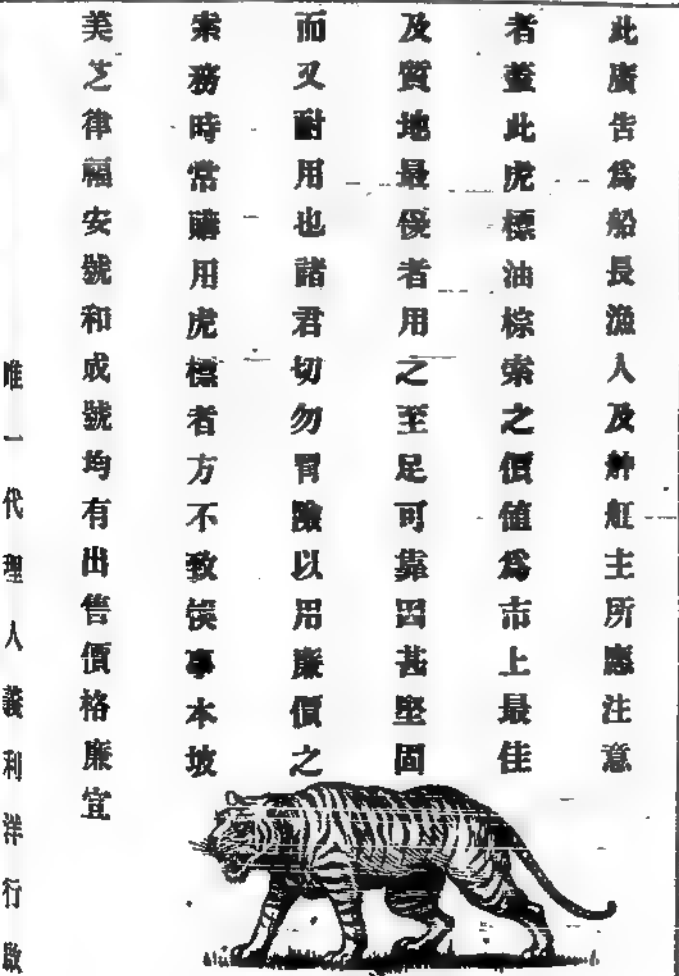 此廣告爲船長漁人及舯舡主所應注意
者蓋此虎標油棕索之價値爲市上最佳
及質地最優者用之至足可靠因甚堅固
而又耐用也諸君切勿冐險以用廉價之
索務時常購用虎標者方不致悞事本坡
美芝律福安號和成號均有出售價格廉宜
唯一代理人義利洋行啟